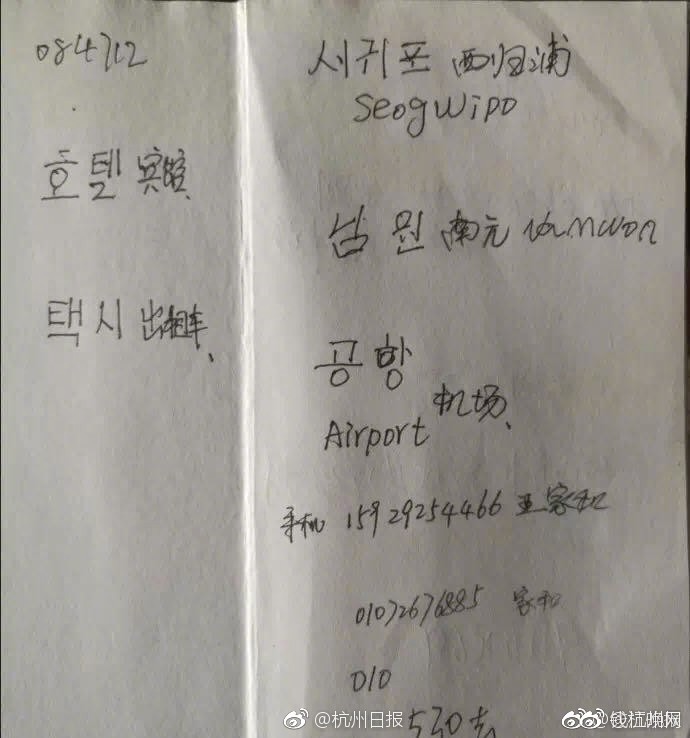 084712
호텔 宾馆、
택시 出租车、
서귀포 西归浦
Seogwipo
남원 南元 Namwon
공항
Airport 机场、
手机 15929254466 王家和
01072676885 家和
010
530去
@杭州日报
@钱江晚网